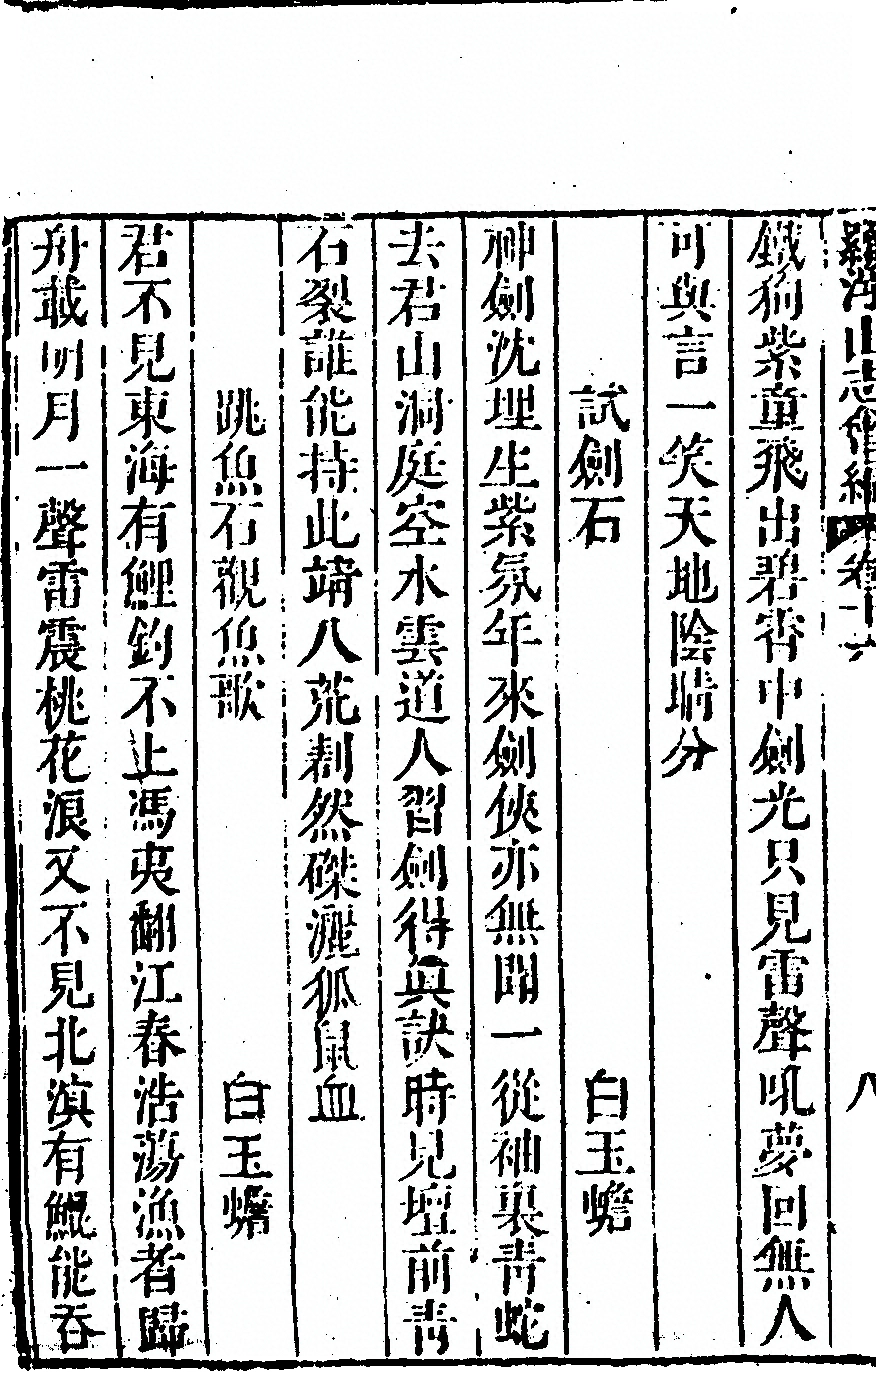 羅浮山志會編 卷十六 八
鐵狗紫童飛出碧霄中劍光只見雷聲吼夢回無人
可與言一笑天地陰晴分
試劍石 白玉蟾
神劍沈埋生紫氛年來劍俠亦無聞一從袖裏青蛇
去君山洞庭空水雲道人習劍得眞訣時見壇前青
石裂誰能持此靖八荒剨然磔灑狐鼠血
跳魚石觀魚歌 白玉蟾
君不見東海有鯉釣不上馮夷翻江春浩蕩漁者歸
舟載明月一聲雷震桃花浪又不見北滇有鯤能吞